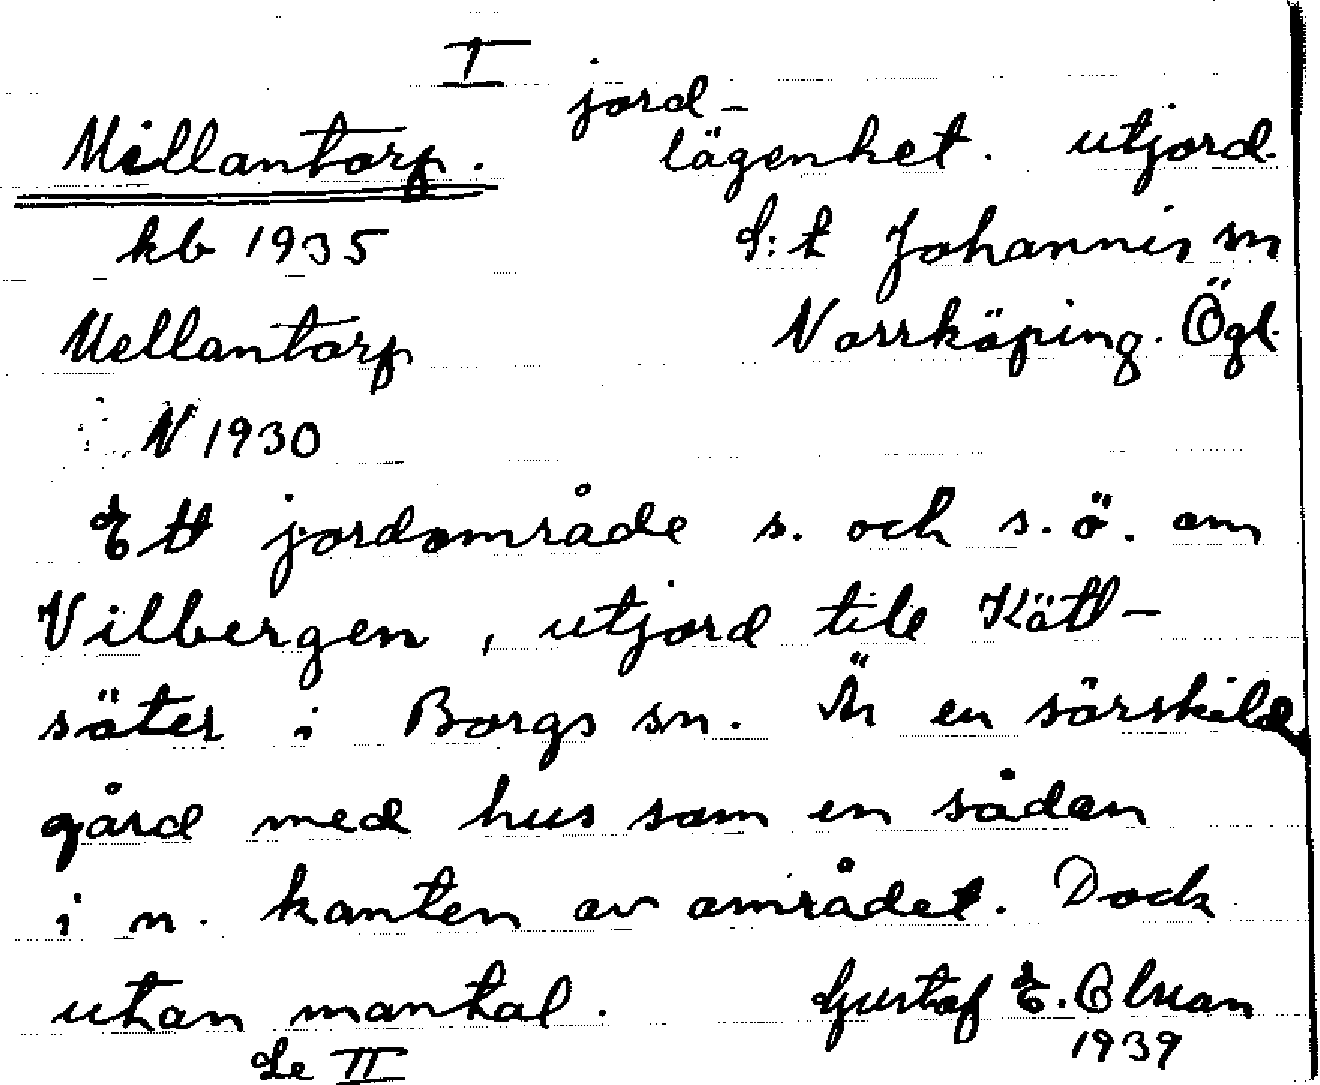 I
jord-
Mellantorp. lägenhet. utjord.
kb 1935 S:t Johannis sn
Mellantorp Norrköping. Ögl.
N 1930
Ett jordområde s. och s.ö. om
Vilbergen, utjord till Kätt-
säter i Borgs sn. Är en särskild
gård med hus som en sådan
i n. kanten av området. Dock
utan mantal. Gustaf E. Olson
1939
Se II